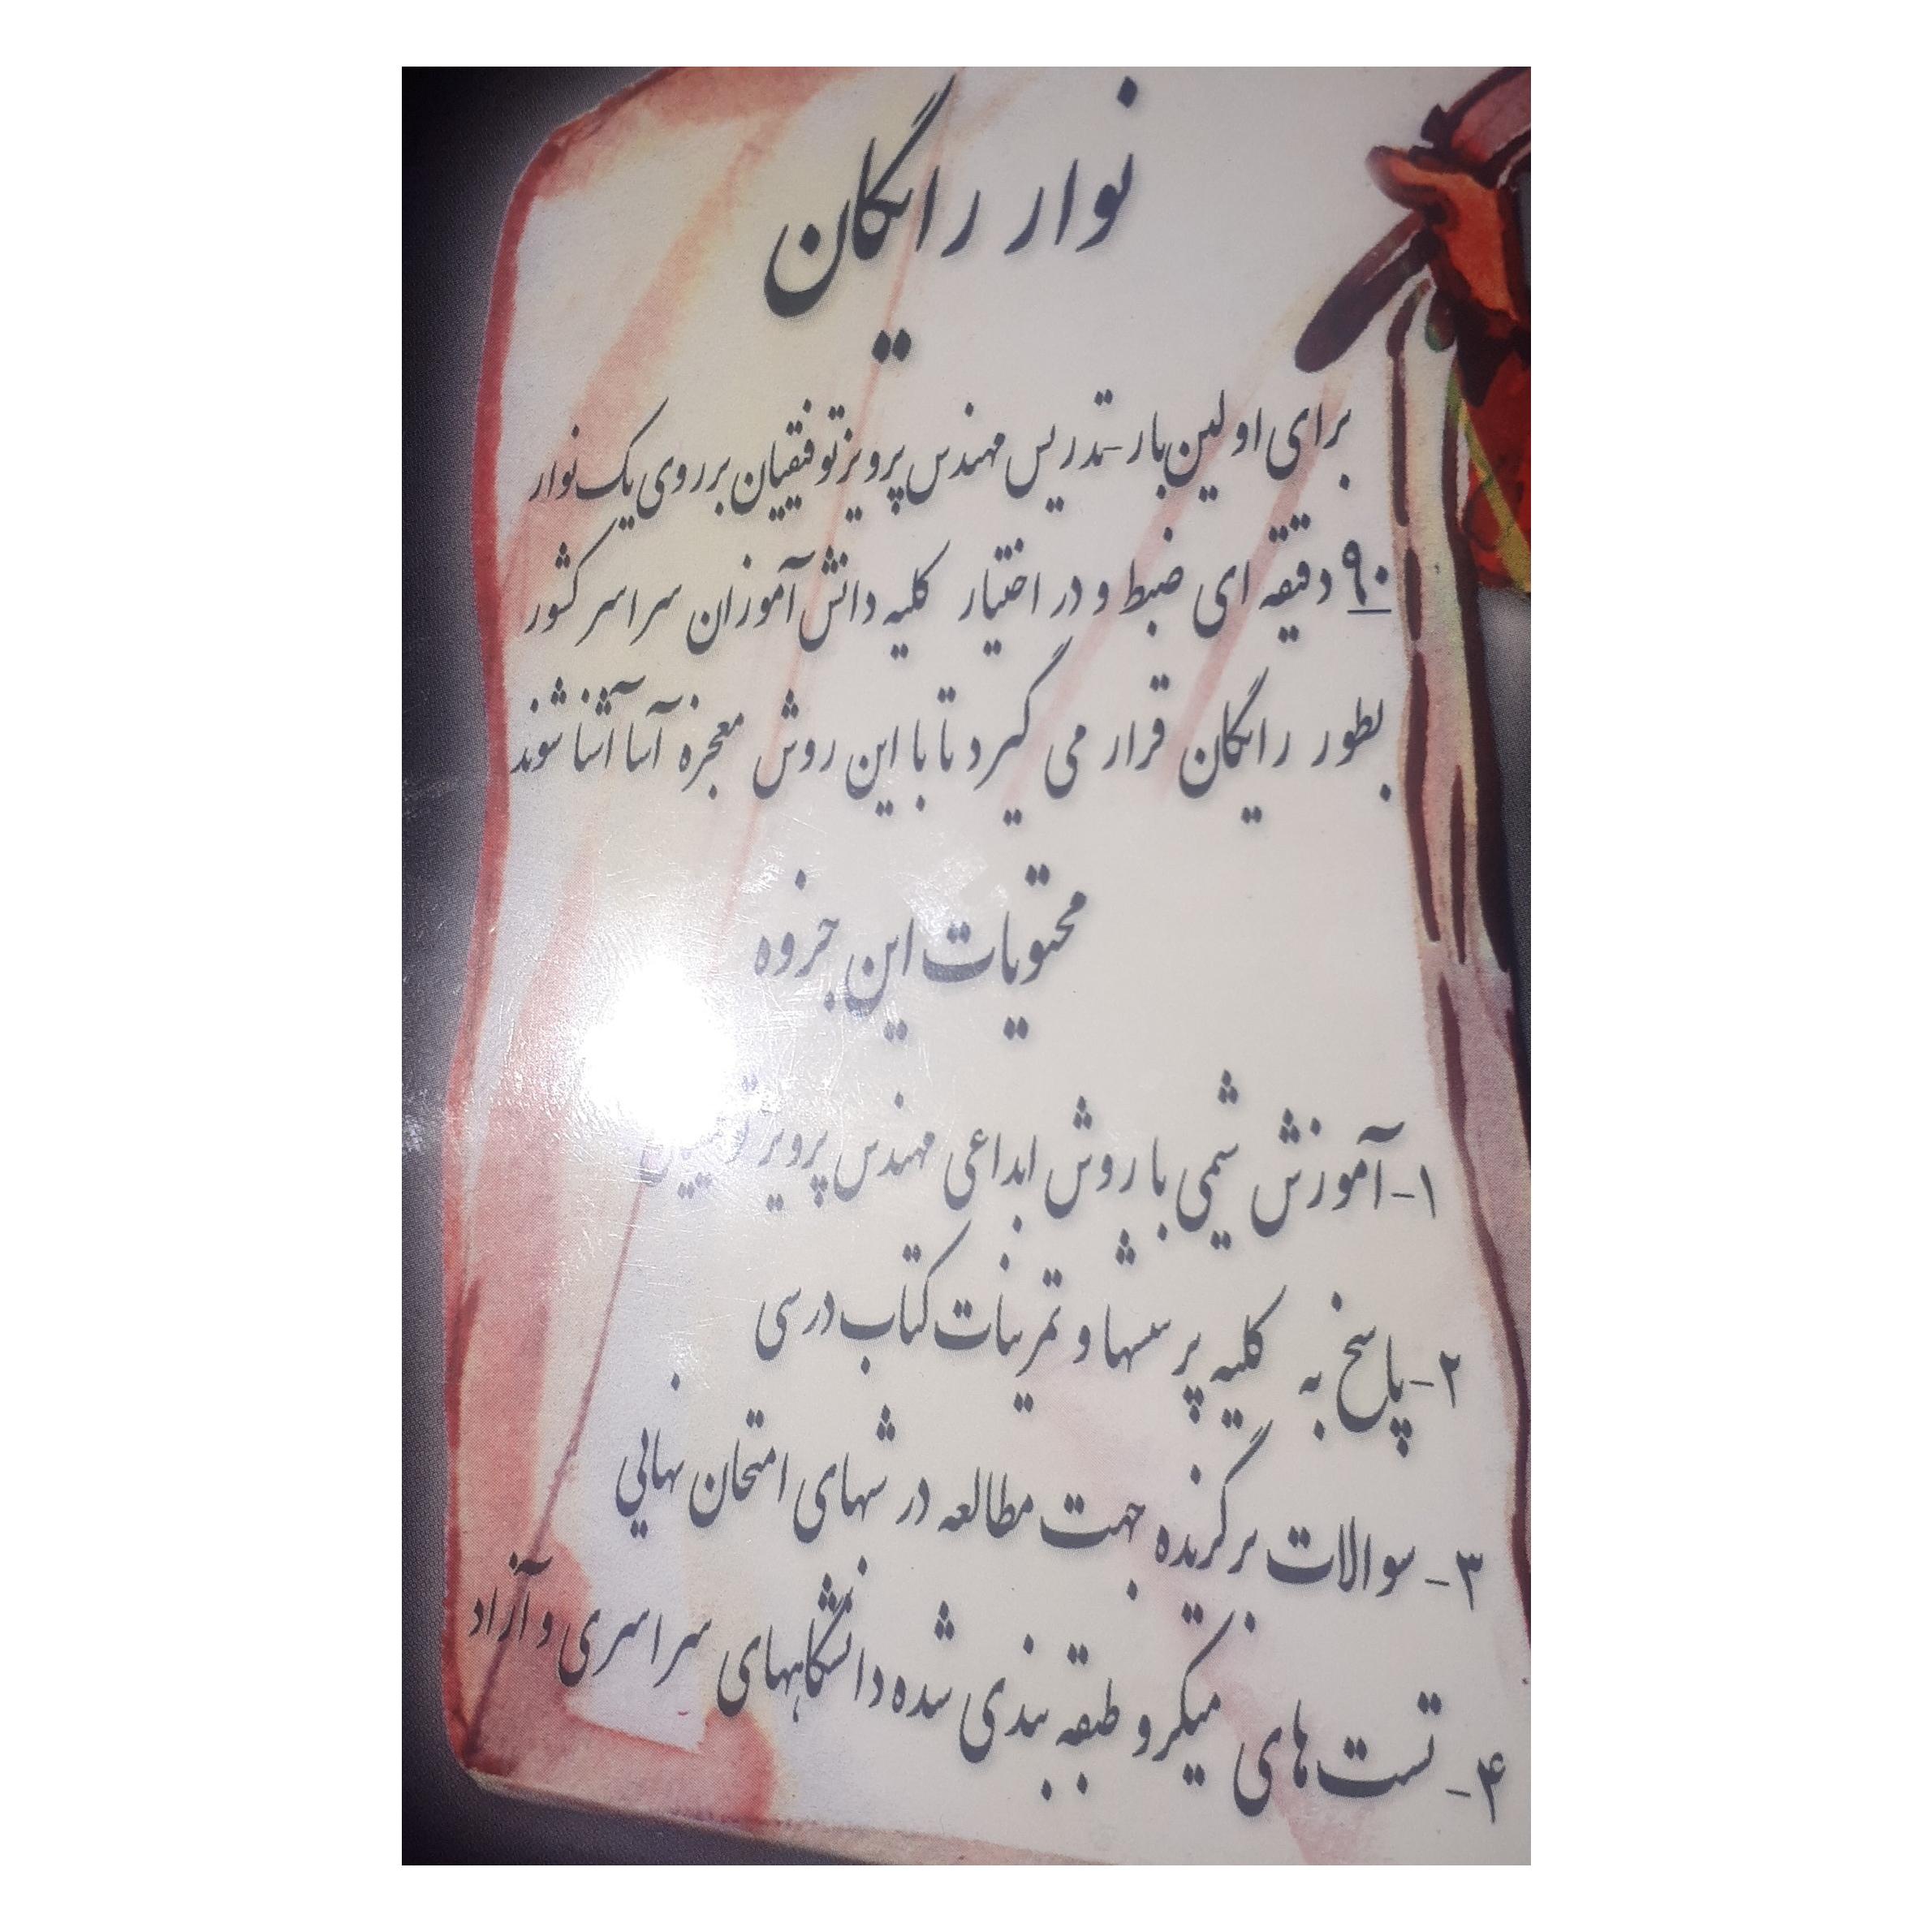 نوار رایگان
برای اولین بار تدریس مهندس پرویز توفیقیان بر روی یک نوار
۹۰ دقیقه ای ضبط و در اختیار کلیه دانش آموزان سراسر کشور
بطور رایگان قرار می گیرد تا با این روش معجزه آسا آشنا شوند
محتویات این جزوه
۱- آموزش شیمی با روش ابداعی مهندس پرویز توفیقیان
۲- پاسخ به کلیه پرسشها و تمرینات کتاب درسی
۳- سوالات برگزیده جهت مطالعه در شبهای امتحان نهایی
۴- تست های میکرو طبقه بندی شده دانشگاههای سراسری و آزاد